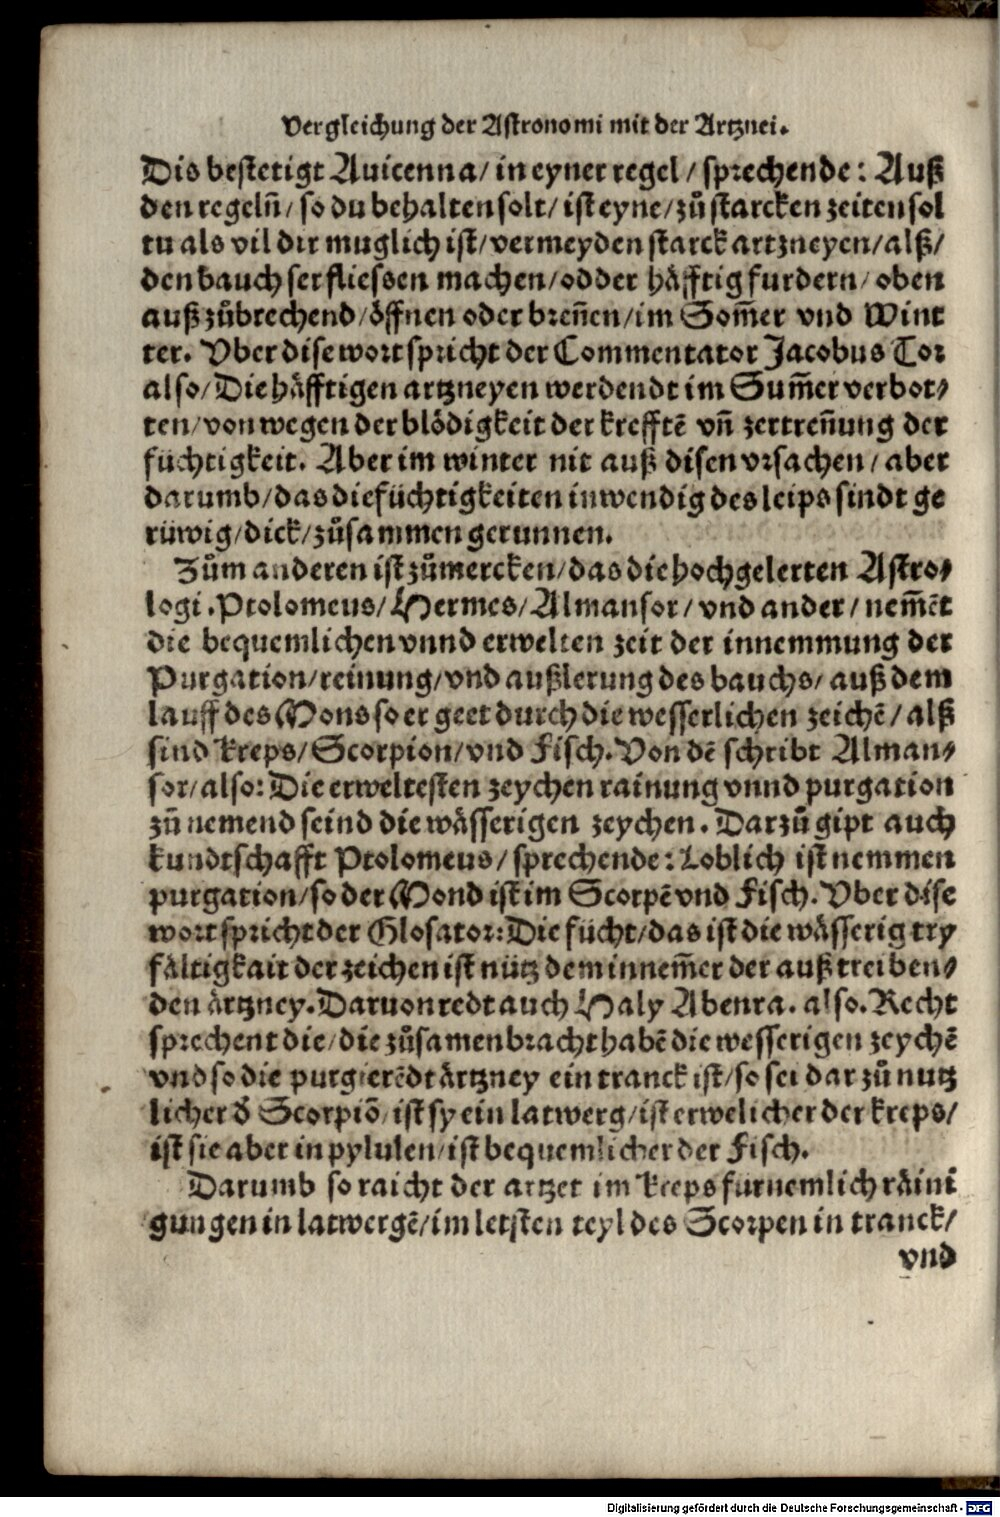 Vergleichung der Astronomi mit der Artznei.
Dis bestetigt Auicenna/ in eyner regel/ sprechende: Auß
den regeln̄/ so du behalten solt/ ist eyne/ zů starcken zeiten sol
tu als vil dir muglich ist/ vermeyden starck artzneyen/ alß/
den bauch ser fliessen machen/ odder häfftig furdern/ oben
auß zůbrechend/ öffnen oder breñen/ im Som̃er vnd Wint
ter. Vber dise wort spricht der Commentator Jacobus Tor
also/ Die häfftigen artzneyen werdendt im Sum̃er verbot⸗
ten/ von wegen der blödigkeit der krefftē vñ zertreñung der
füchtigkeit. Aber im winter nit auß disen vrsachen/ aber
darumb/ das die füchtigkeiten inwendig des leips sindt ge
rüwig/ dick/ zůsammen gerunnen.
Zům anderen ist zůmercken/ das die hochgelerten Astro⸗
logi. Ptolomeus/ Hermes/ Almansor/ vnd ander/ nem̃ēt
die bequemlichen vnnd erwelten zeit der innemmung der
Purgation/ reinung/ vnd außlerung des bauchs/ auß dem
lauff des Mons so er geet durch die wesserlichen zeichē/ alß
sind Kreps/ Scorpion/ vnd Fisch. Von dē schribt Alman⸗
sor/ also: Die erweltesten zeychen rainung vnnd purgation
zů nemend seind die wässerigen zeychen. Darzů gipt auch
kundtschafft Ptolomeus/ sprechende: Loblich ist nemmen
purgation/ so der Mond ist im Scorpē vnd Fisch. Vber dise
wort spricht der Glosator: Die fücht/ das ist die wässerig try
fältigkait der zeichen ist nütz dem innem̃er der auß treiben⸗
den ärtzney. Daruon redt auch Haly Abenra. also. Recht
sprechent die/ die zůsamen bracht habē die wesserigen zeychē
vnd so die purgierēdt ärtzney ein tranck ist/ so sei dar zů nutz
licher d̕ Scorpiō/ ist sy ein latwerg/ ist erwelicher der kreps/
ist sie aber in pylulen/ ist bequemlicher der Fisch.
Darumb so raicht der artzet im Kreps furnemlich räini
gungen in latwergē/ im letsten teyl des Scorpen in tranck/
vnd
Digitalisierung gefördert durch die Deutsche Forschungsgemeinschaft - DFG